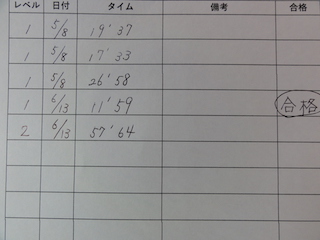 レベル 日付 タイム 備考 合格
1 5/8 19'37
1 5/8 17'33
1 5/8 26'58
1 6/13 11'59 合格
2 6/13 57'64